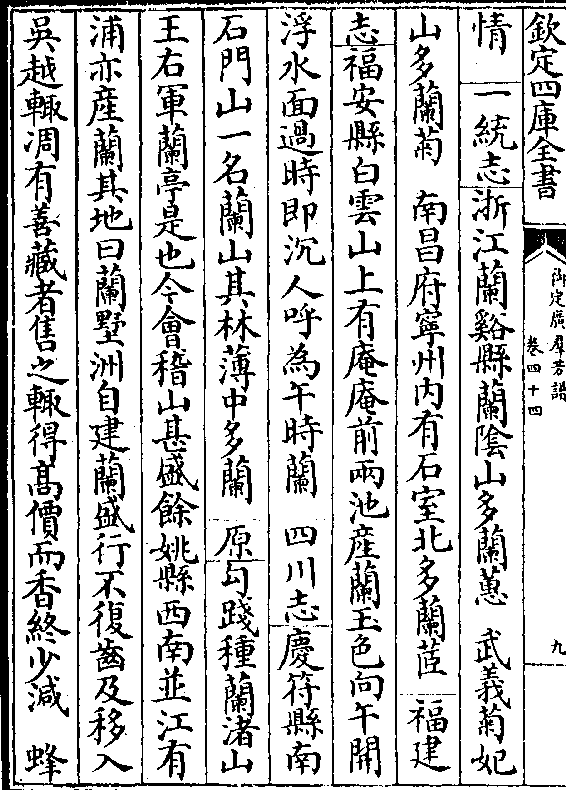 欽定四庫全書
御定廣羣芳譜
卷四十四
九
情　一統志浙江蘭谿縣蘭陰山多蘭蕙　武義菊妃
山多蘭菊　南昌府寧州内有石室北多蘭茝　福建
志福安縣白雲山上有庵庵前兩池産蘭玉色向午開
浮水面過時即沉人呼為午時蘭　四川志慶符縣南
石門山一名蘭山其林薄中多蘭　原勾踐種蘭渚山
王右軍蘭亭是也今會稽山甚盛餘姚縣西南並江有
浦亦産蘭其地曰蘭墅洲自建蘭盛行不復齒及移入
吳越輙凋有善藏者售之輙得髙價而香終少減　蜂